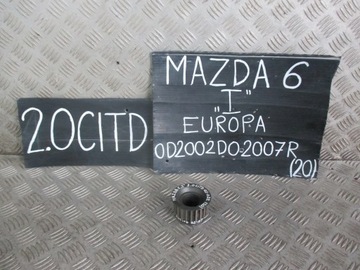 2.0CITD
MAZDA 6
"I"
EUROPA
OD2002DO2007R
(20)